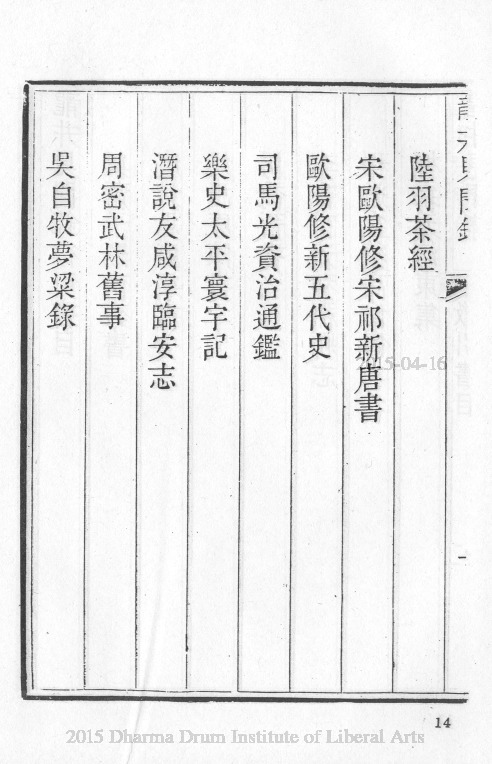 陸羽茶經
宋歐陽修宋祁新唐書
歐陽修新五代史
司馬光資治通鑑
樂史太平寰宇記
潛說友咸淳臨安志
周密武林舊事
吳自牧夢粱錄
14
2015-04-16
2015 Dharma Drum Institute of Liberal Arts